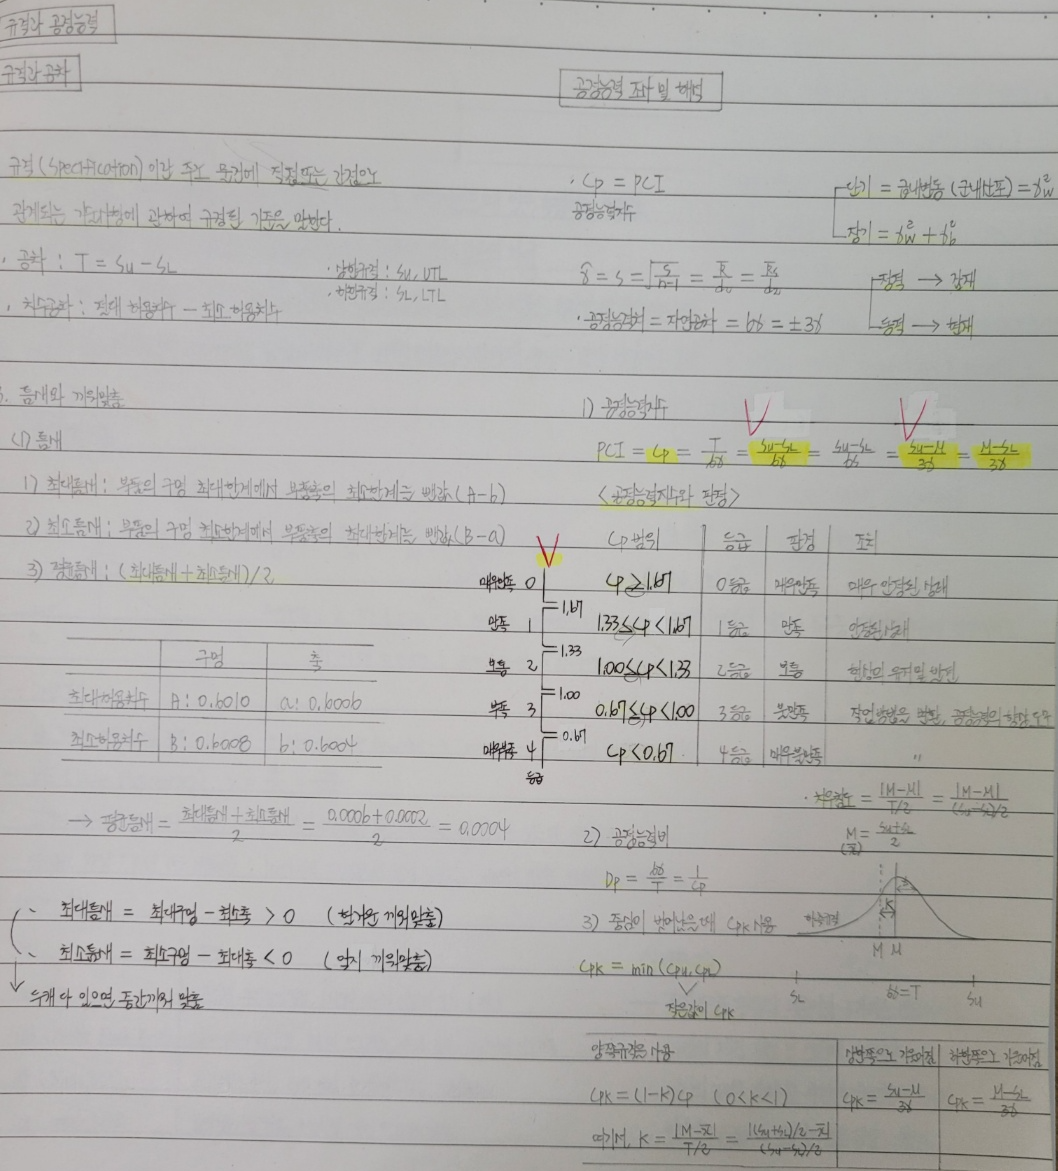 규격과 공정능력
규격과 공차
규격(Specification)이란 주로 물건에 직접또는 간접으로
관계되는 기술사항에 관하여 규정된 기준을 말한다.
· 공차 : T = Su - SL
· 상한규격 : Su, UTL
· 하한규격 : SL, LTL
· 치수공차 : 최대 허용치수 - 최소 허용치수
3. 틈새와 끼워맞춤
(1) 틈새
1) 최대틈새 : 부품의 구멍 최대한계에서 부품축의 최소한계를 뺀값(A-b)
2) 최소틈새 : 부품의 구멍 최소한계에서 부품축의 최대한계를 뺀값(B-a)
3) 평균틈새 : (최대틈새+최소틈새)/2
구멍 축
최대허용치수 A : 0.6010 a : 0.6006
최소허용치수 B : 0.6008 b : 0.6004
→ 평균틈새 = 최대틈새+최소틈새/2 = 0.0006+0.0002/2 = 0.0004
최대틈새 = 최대구멍 - 최소축 > 0 (헐거운 끼워맞춤)
최소틈새 = 최소구멍 - 최대축 < 0 (억지 끼워맞춤)
두개 다 있으면 중간끼워 맞춤
공정능력 조사 및 해석
· Cp = PCI
공정능력지수
단기 = 급내변동 (군내산포) = σw²
장기 = σw² + σb²
σ̂ = s = √S/n-1 = R̄/d₂ = R̄s/d₂
정적 → 잠재
동적 → 현재
· 공정능력치 = 자연공차 = 6σ = ±3σ
1) 공정능력지수
PCI = Cp = T/6σ = Su-SL/6σ = Su-SL/6s = Su-M/3σ = M-SL/3σ
<공정능력지수와 판정>
Cp 범위 등급 판정 조치
매우만족 0 Cp≥1.67 0등급 매우만족 매우 안정된 상태
1.67
만족 1 1.33≤Cp<1.67 1등급 만족 안정된 상태
1.33
보통 2 1.00≤Cp<1.33 2등급 보통 현상의 유지및
1.00
부족 3 0.67≤Cp<1.00 3등급 불만족 작업방법을 공정능력의 향상 도모
0.67
매우부족 4 Cp<0.67 4등급 매우불만족 〃
등급
· 치우침도 = |M-μ|/T/2 = |M-μ|/(Su-SL)/2
2) 공정능력비
M = Su+SL/2
(x̄)
Dp = 6σ/T = 1/Cp
3) 중심이 벗어났을 때 Cpk 사용
K
M μ
Cpk = min (Cpu, CpL)
작은값이 Cpk
SL 6σ=T Su
양쪽규격을 사용 상한쪽으로 기울어짐 하한쪽으로 기울어짐
Cpk = (1-K)Cp (0<K<1) Cpk = Su-M/3σ Cpk = M-SL/3σ
여기서, K = |M-x̄|/T/2 = |(Su+SL)/2-x̄|/(Su-SL)/2